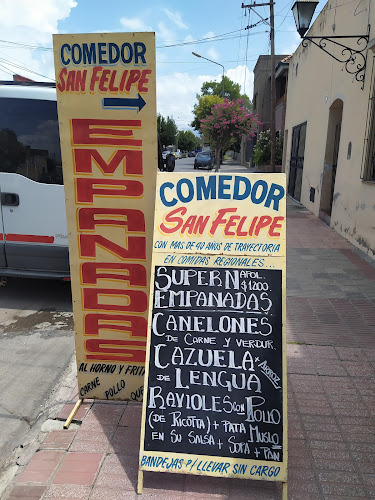 COMEDOR
SAN FELIPE
EMPANADAS
AL HORNO Y FRITAS
CARNE POLLO
COMEDOR
SAN FELIPE
CON MAS DE 40 AÑOS DE TRAYECTORIA
EN COMIDAS REGIONALES...
SUPER NAPOL.
$1200
EMPANADAS
CANELONES
DE CARNE Y VERDUR
CAZUELA + ARROZ
DE LENGUA
RAVIOLES CON POLLO
(DE RICOTTA) O PATA MUSLO
EN SU SALSA + SODA + PAN
BANDEJAS P/ LLEVAR SIN CARGO